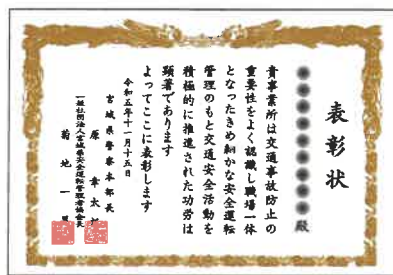 表彰状
殿
貴事業所は交通事故防止の
重要性をよく認識し職場一体
となったきめ細かな安全運転
管理のもと交通安全活動を
積極的に推進された功労は
顕著であります
よってここに表彰します
令和五年十一月十五日
宮城県警察本部長
原 幸太郎
一般社団法人宮城県安全運転管理者協会長
菊地 一